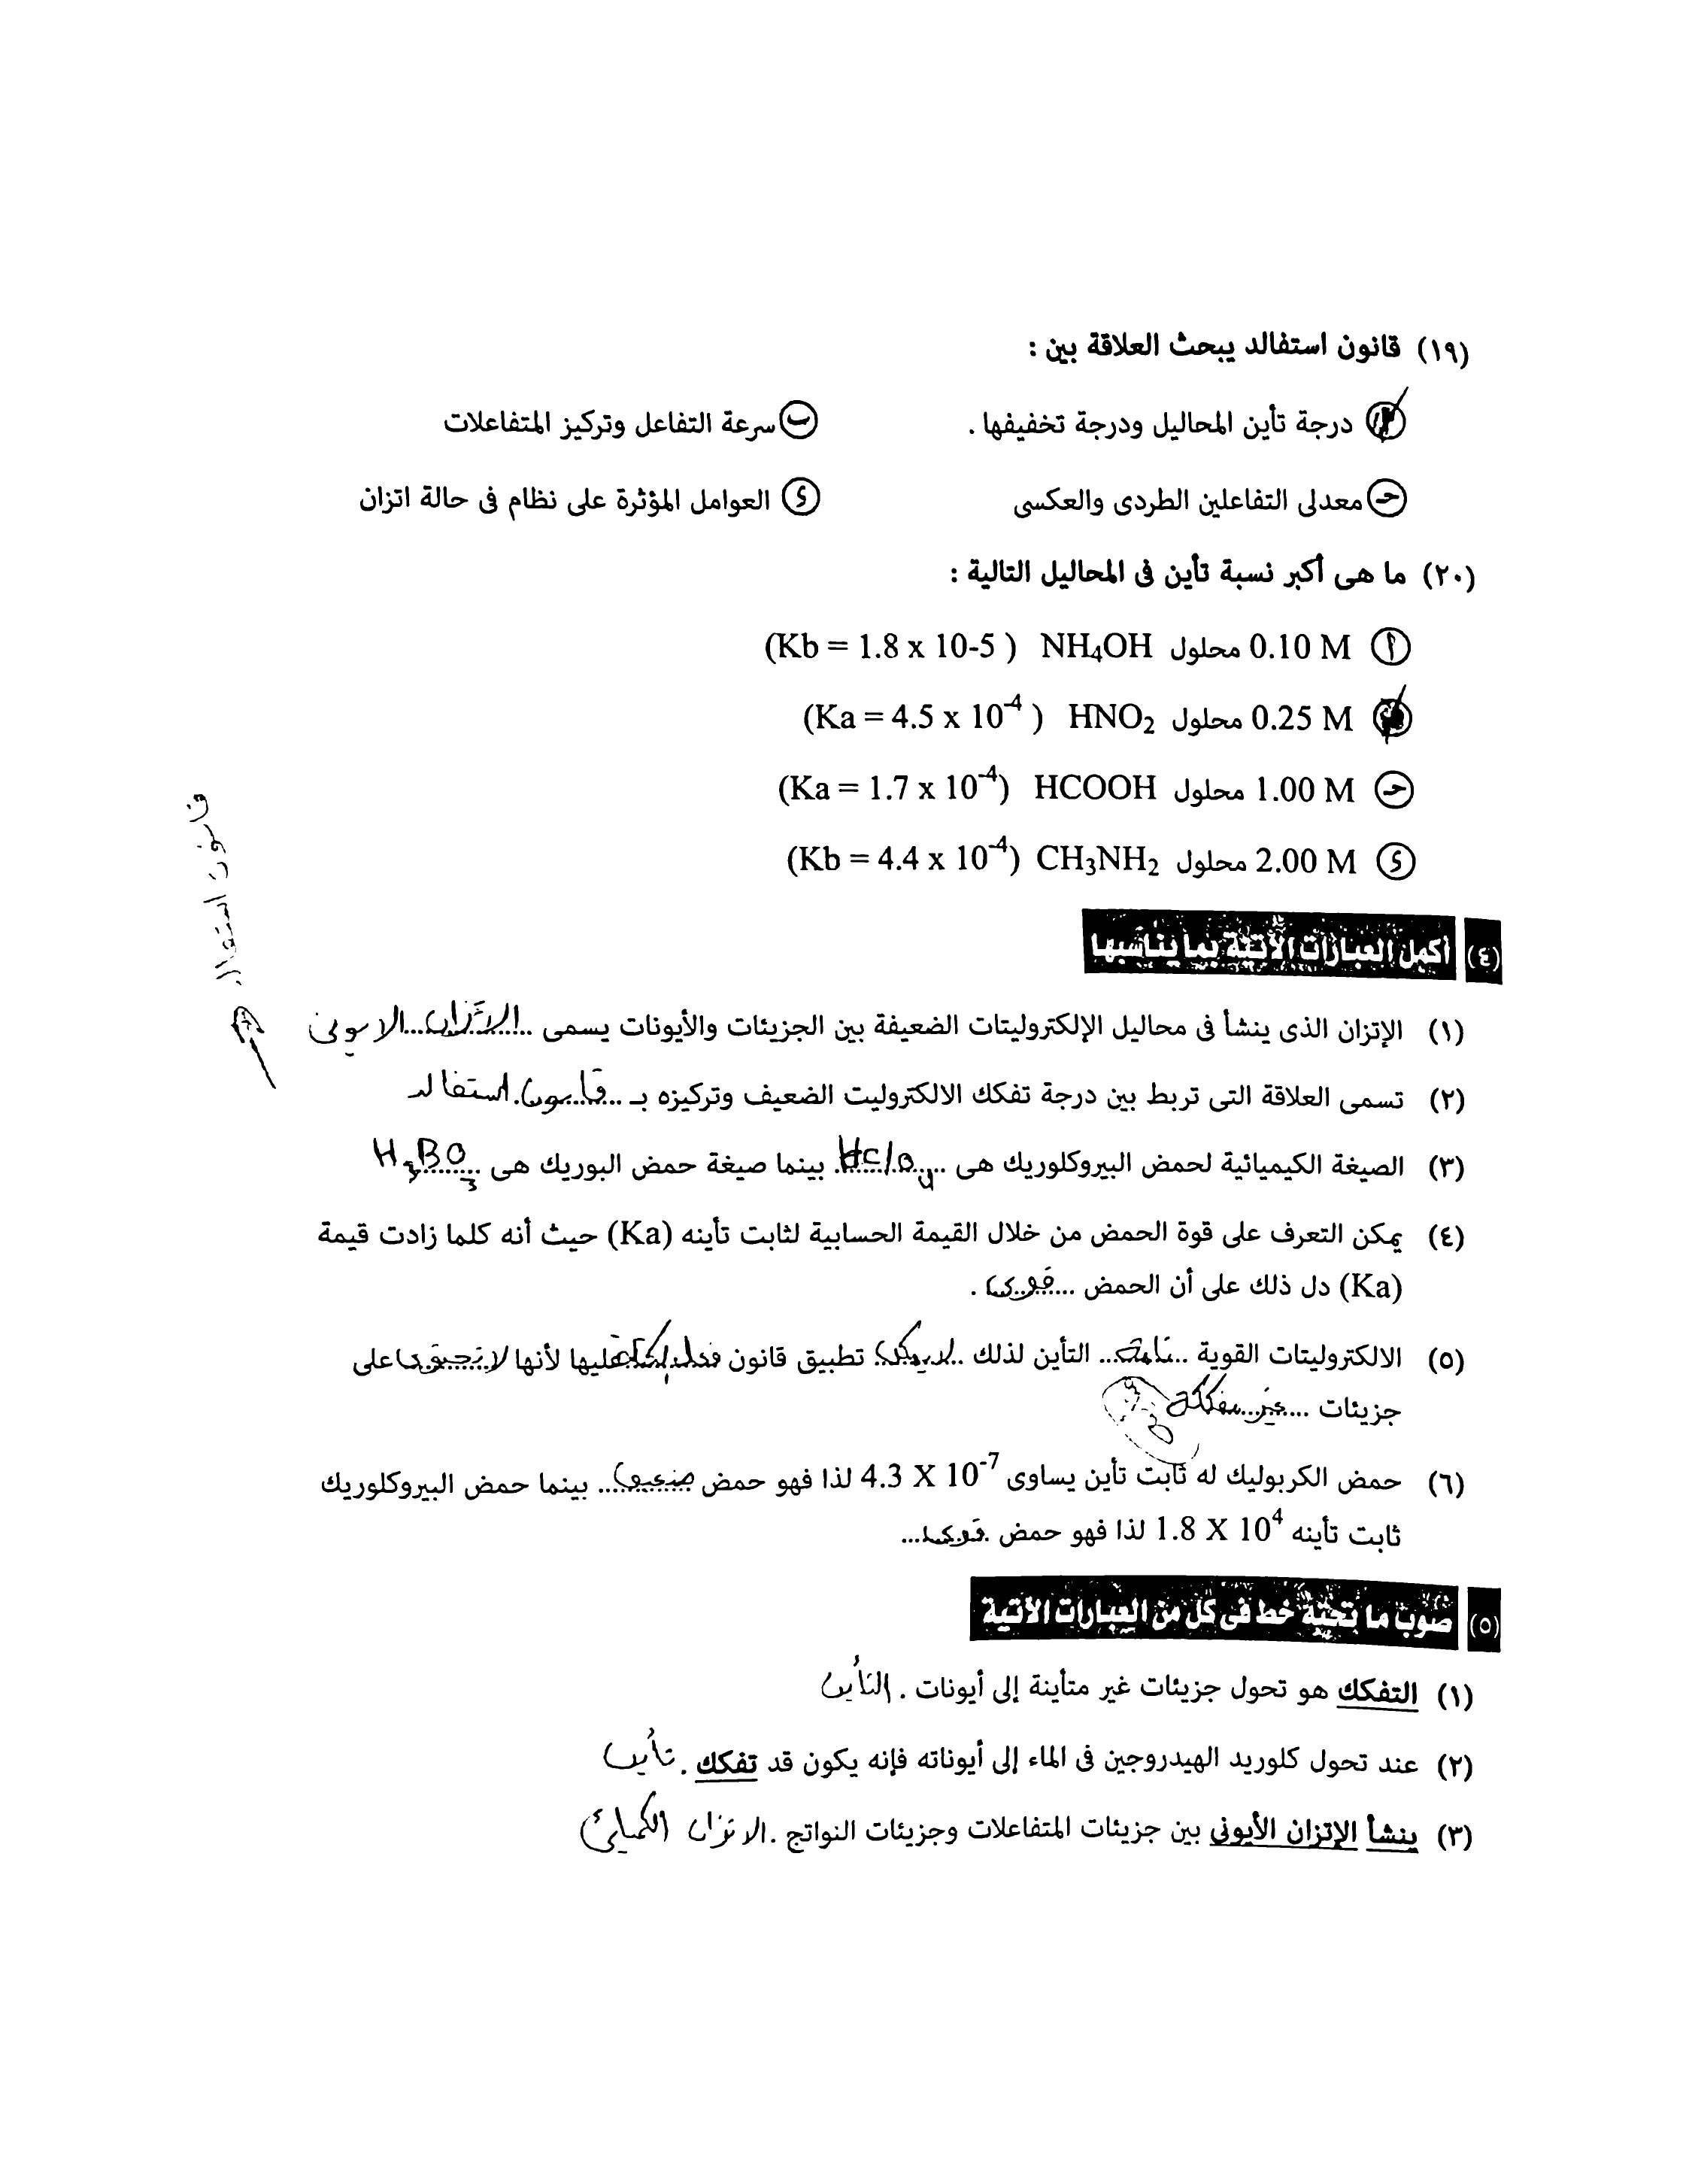 (١٩) قانون استفالد يبحث العلاقة بين :
أ درجة تأين المحاليل ودرجة تخفيفها . ب سرعة التفاعل وتركيز المتفاعلات
جـ معدلى التفاعلين الطردى والعكسى د العوامل المؤثرة على نظام فى حالة اتزان
(٢٠) ما هى أكبر نسبة تأين فى المحاليل التالية :
أ 0.10 M محلول NH4OH (Kb = 1.8 x 10-5 )
ب 0.25 M محلول HNO2 (Ka = 4.5 x 10-4 )
جـ 1.00 M محلول HCOOH (Ka = 1.7 x 10-4)
د 2.00 M محلول CH3NH2 (Kb = 4.4 x 10-4)
قانون استفالد
(٤) أكمل العبارات الأتية بما يناسبها
(١) الإتزان الذى ينشأ فى محاليل الإلكتروليتات الضعيفة بين الجزيئات والأيونات يسمى الاتزان الايونى
(٢) تسمى العلاقة التى تربط بين درجة تفكك الالكتروليت الضعيف وتركيزه بـ قانون استفالد
(٣) الصيغة الكيميائية لحمض البيروكلوريك هى HClO4 بينما صيغة حمض البوريك هى H3BO3
(٤) يمكن التعرف على قوة الحمض من خلال القيمة الحسابية لثابت تأينه (Ka) حيث أنه كلما زادت قيمة
(Ka) دل ذلك على أن الحمض قوى .
(٥) الالكتروليتات القوية تامة التأين لذلك لا يمكن تطبيق قانون فعل الكتلة عليها لأنها لا تحتوى على
جزيئات غير مفككة
(٦) حمض الكربوليك له ثابت تأين يساوى 4.3 X 10-7 لذا فهو حمض ضعيف بينما حمض البيروكلوريك
ثابت تأينه 1.8 X 104 لذا فهو حمض قوى
(٥) صوب ما تحته خط فى كل من العبارات الأتية
(١) التفكك هو تحول جزيئات غير متأينة إلى أيونات . التأين
(٢) عند تحول كلوريد الهيدروجين فى الماء إلى أيوناته فإنه يكون قد تفكك . تأين
(٣) ينشأ الإتزان الأيونى بين جزيئات المتفاعلات وجزيئات النواتج . الاتزان الكميائى